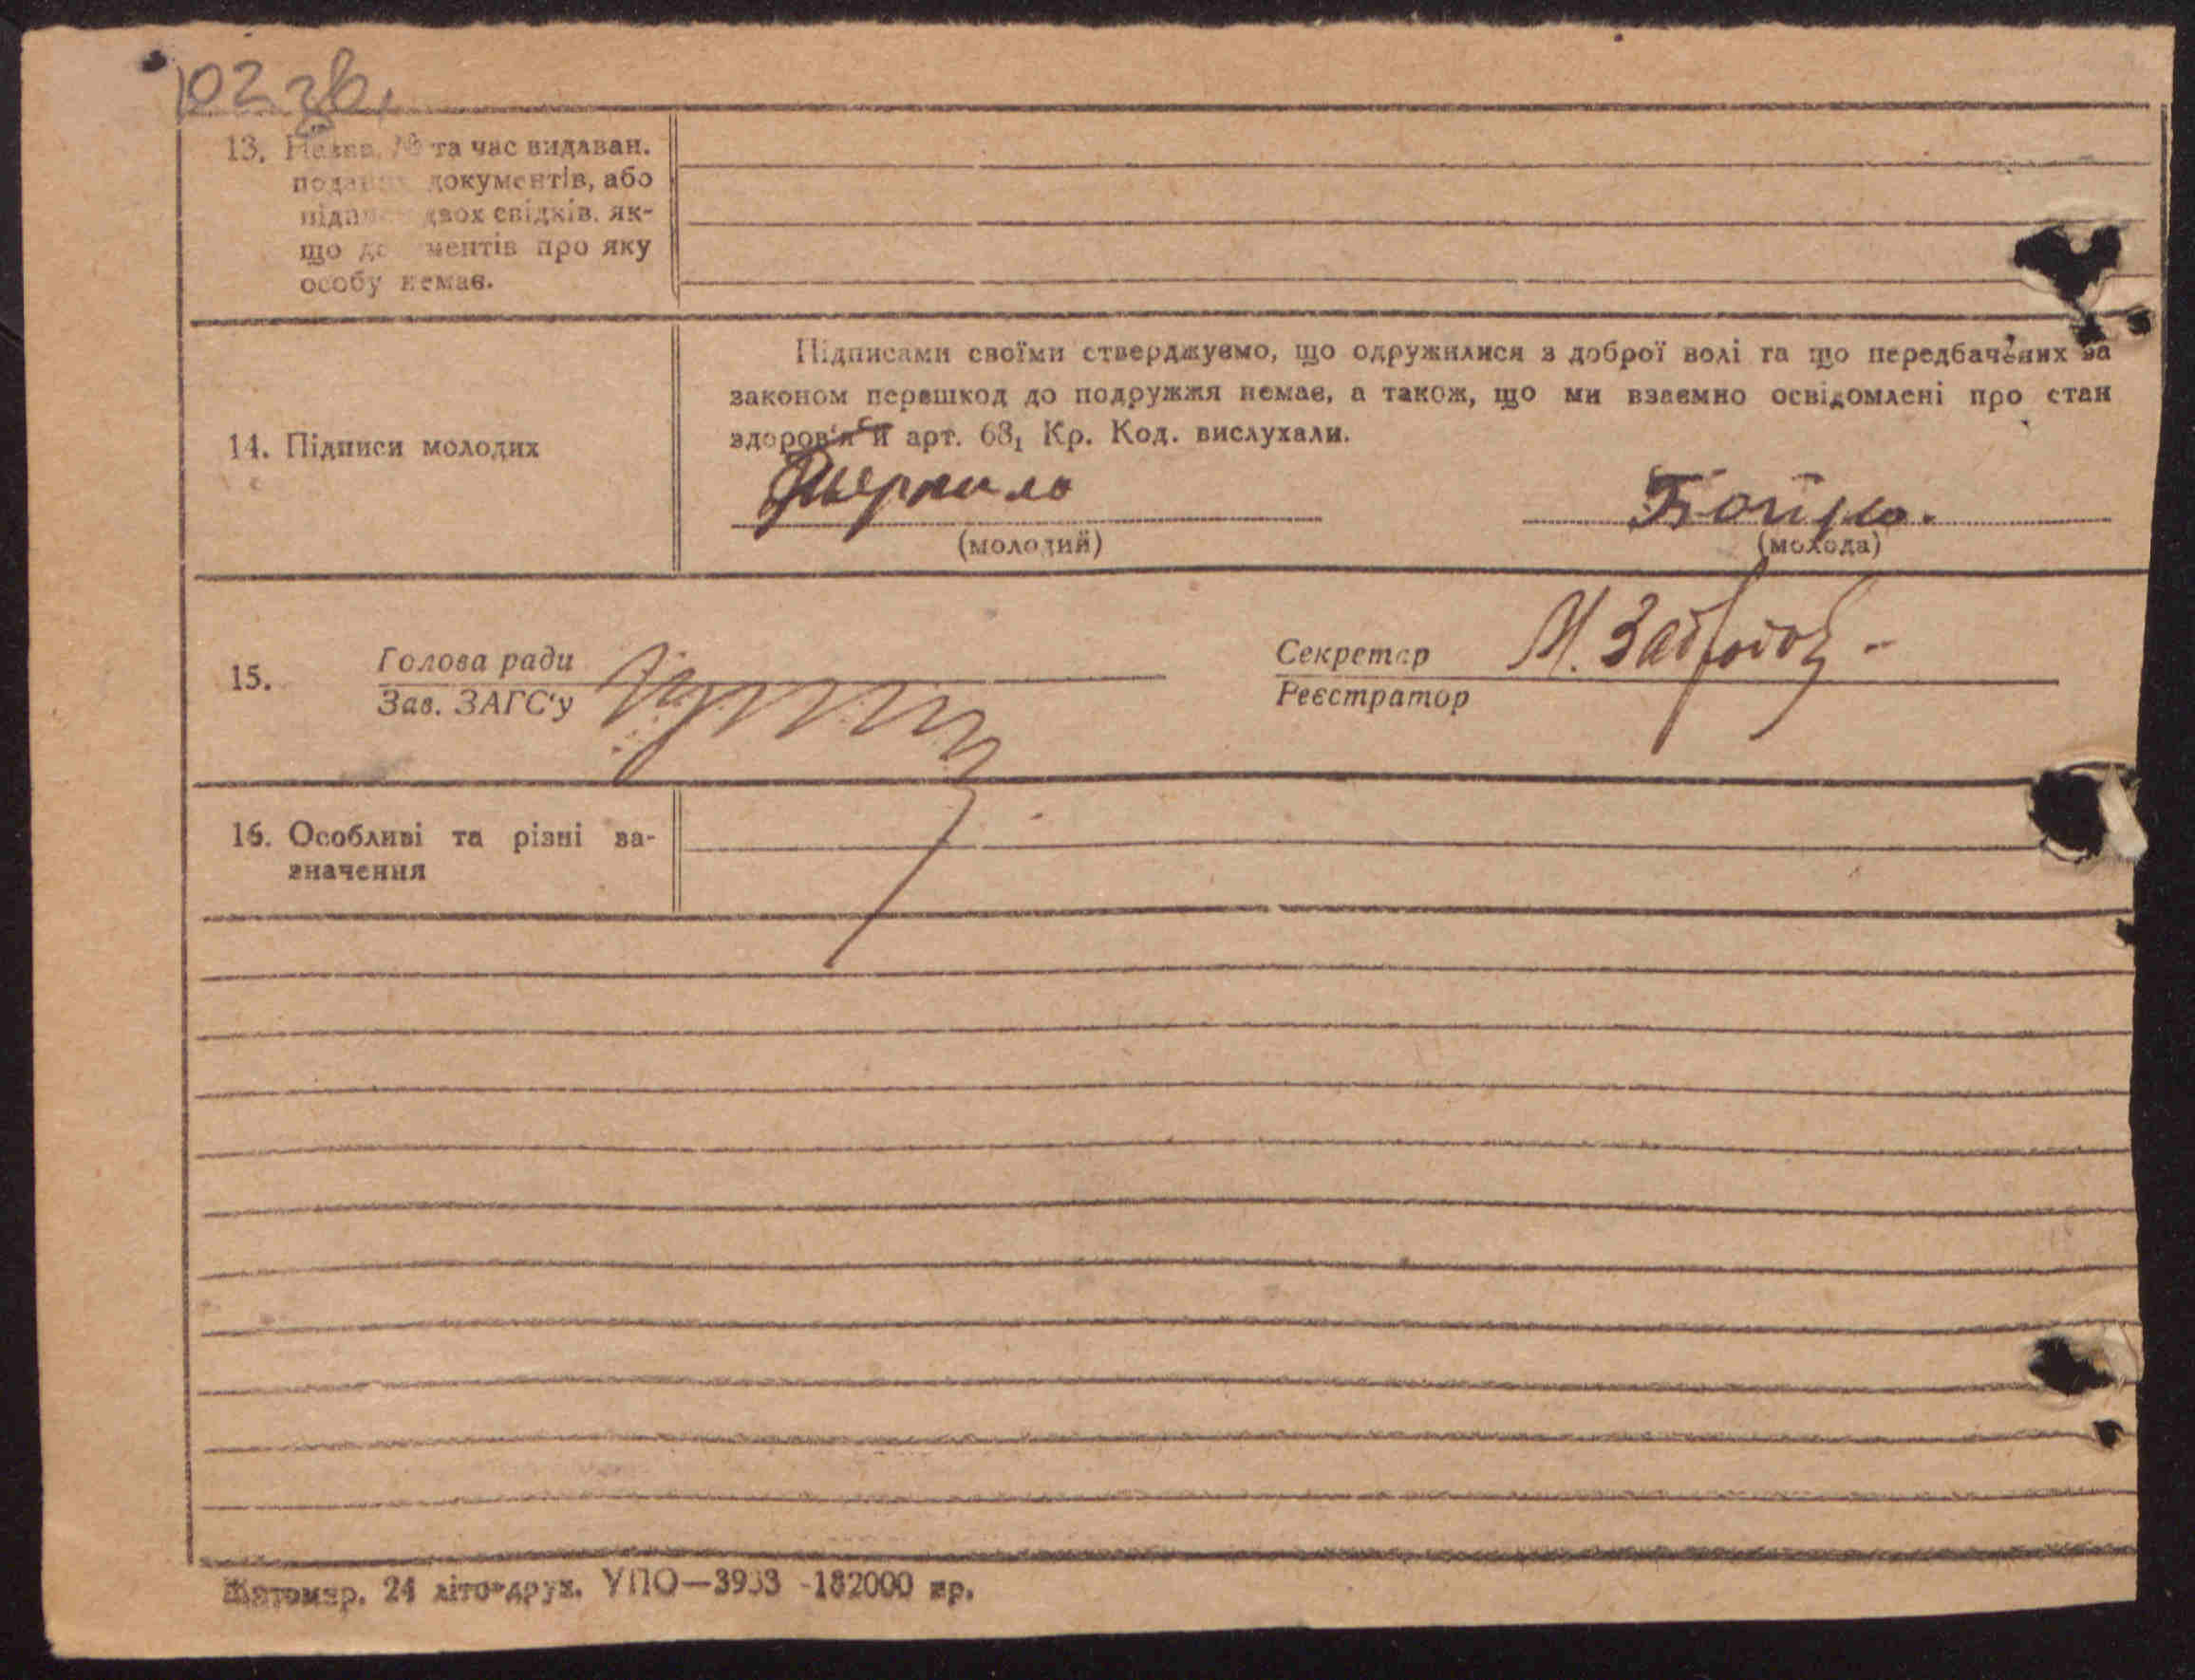 102 зв.
13. Назва, № та час видаван.
поданих документів, або
підписи двох свідків, як-
що документів про яку
особу немає.
Підписами своїми стверджуємо, що одружилися з доброї волі та що передбачених за
законом перешкод до подружжя немає, а також, що ми взаємно освідомлені про стан
здоров'я й арт. 68₁ Кр. Код. вислухали.
14. Підписи молодих
(молодий) (молода)
15. Голова ради Секретар М.
Зав. ЗАГС'у Реєстратор
16. Особливі та різні за-
значення
Житомир. 24 літо-друк. УПО—3933 -182000 пр.